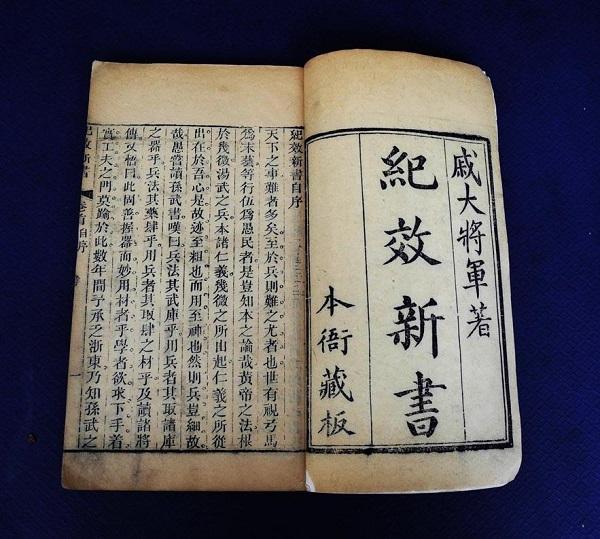 戚大將軍著
紀效新書
本衙藏板
紀效新書自序
天下之事難者多矣至於兵則難之尤者也世有視弓馬
為末藝等行伍為愚民者是豈知本之論哉黃帝之法根
於幾微湯武之兵本諸仁義幾微之所由起仁義之所從
出在於吾心是故迹至粗也而用至神也然則兵豈細故
哉愚嘗讀孫武書嘆曰兵法其武庫乎用兵者其取諸庫
之器乎兵法其藥肆乎用兵者其取肆之材乎及讀諸將
傳又悟曰此固善握器而妙用材者乎學者欲求下手着
實工夫之門莫踰於此數年間予承乏浙東乃知孫武之
紀效新書 卷首 自序 一